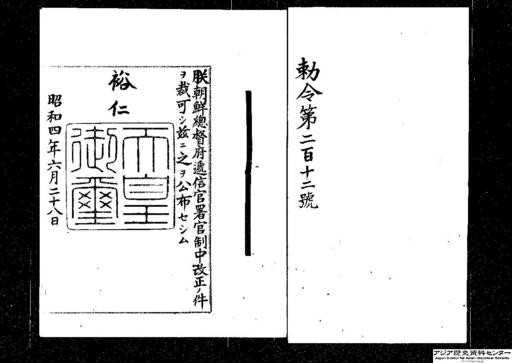 勅令第二百十二號
朕朝鮮總督府遞信官署官制中改正ノ件
ヲ裁可シ茲ニ之ヲ公布セシム
裕仁
天皇
御璽
昭和四年六月二十八日
アジア歴史資料センター
Japan Center for Asian Historical Records